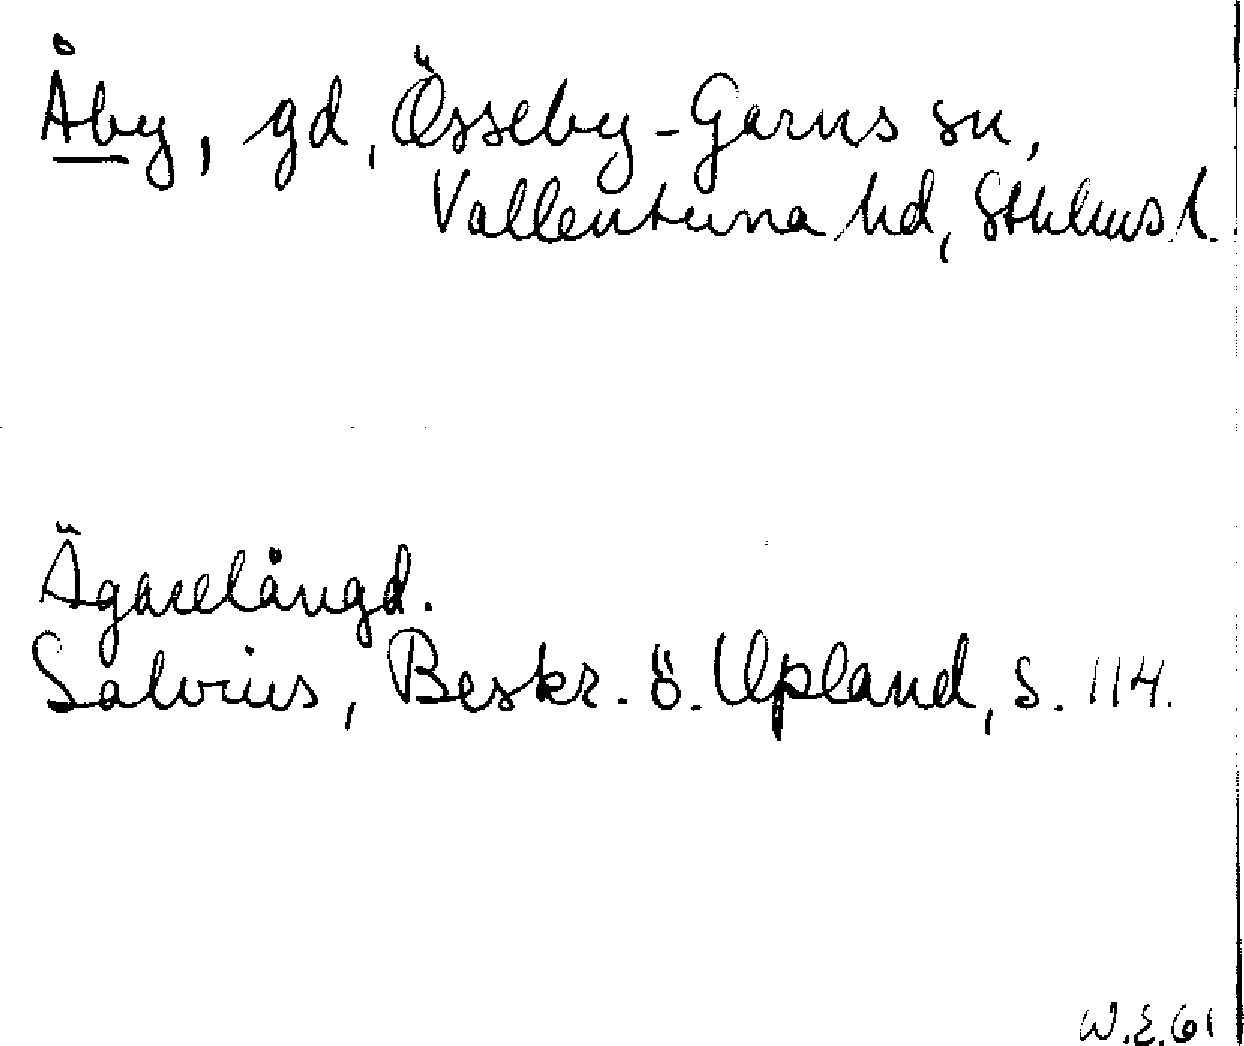 Åby, gd, Össeby-Garns sn,
Vallentuna hd, Sthlms l.
Ägarelängd.
Salvius, Beskr. ö. Upland, s. 114.
W.E. 61